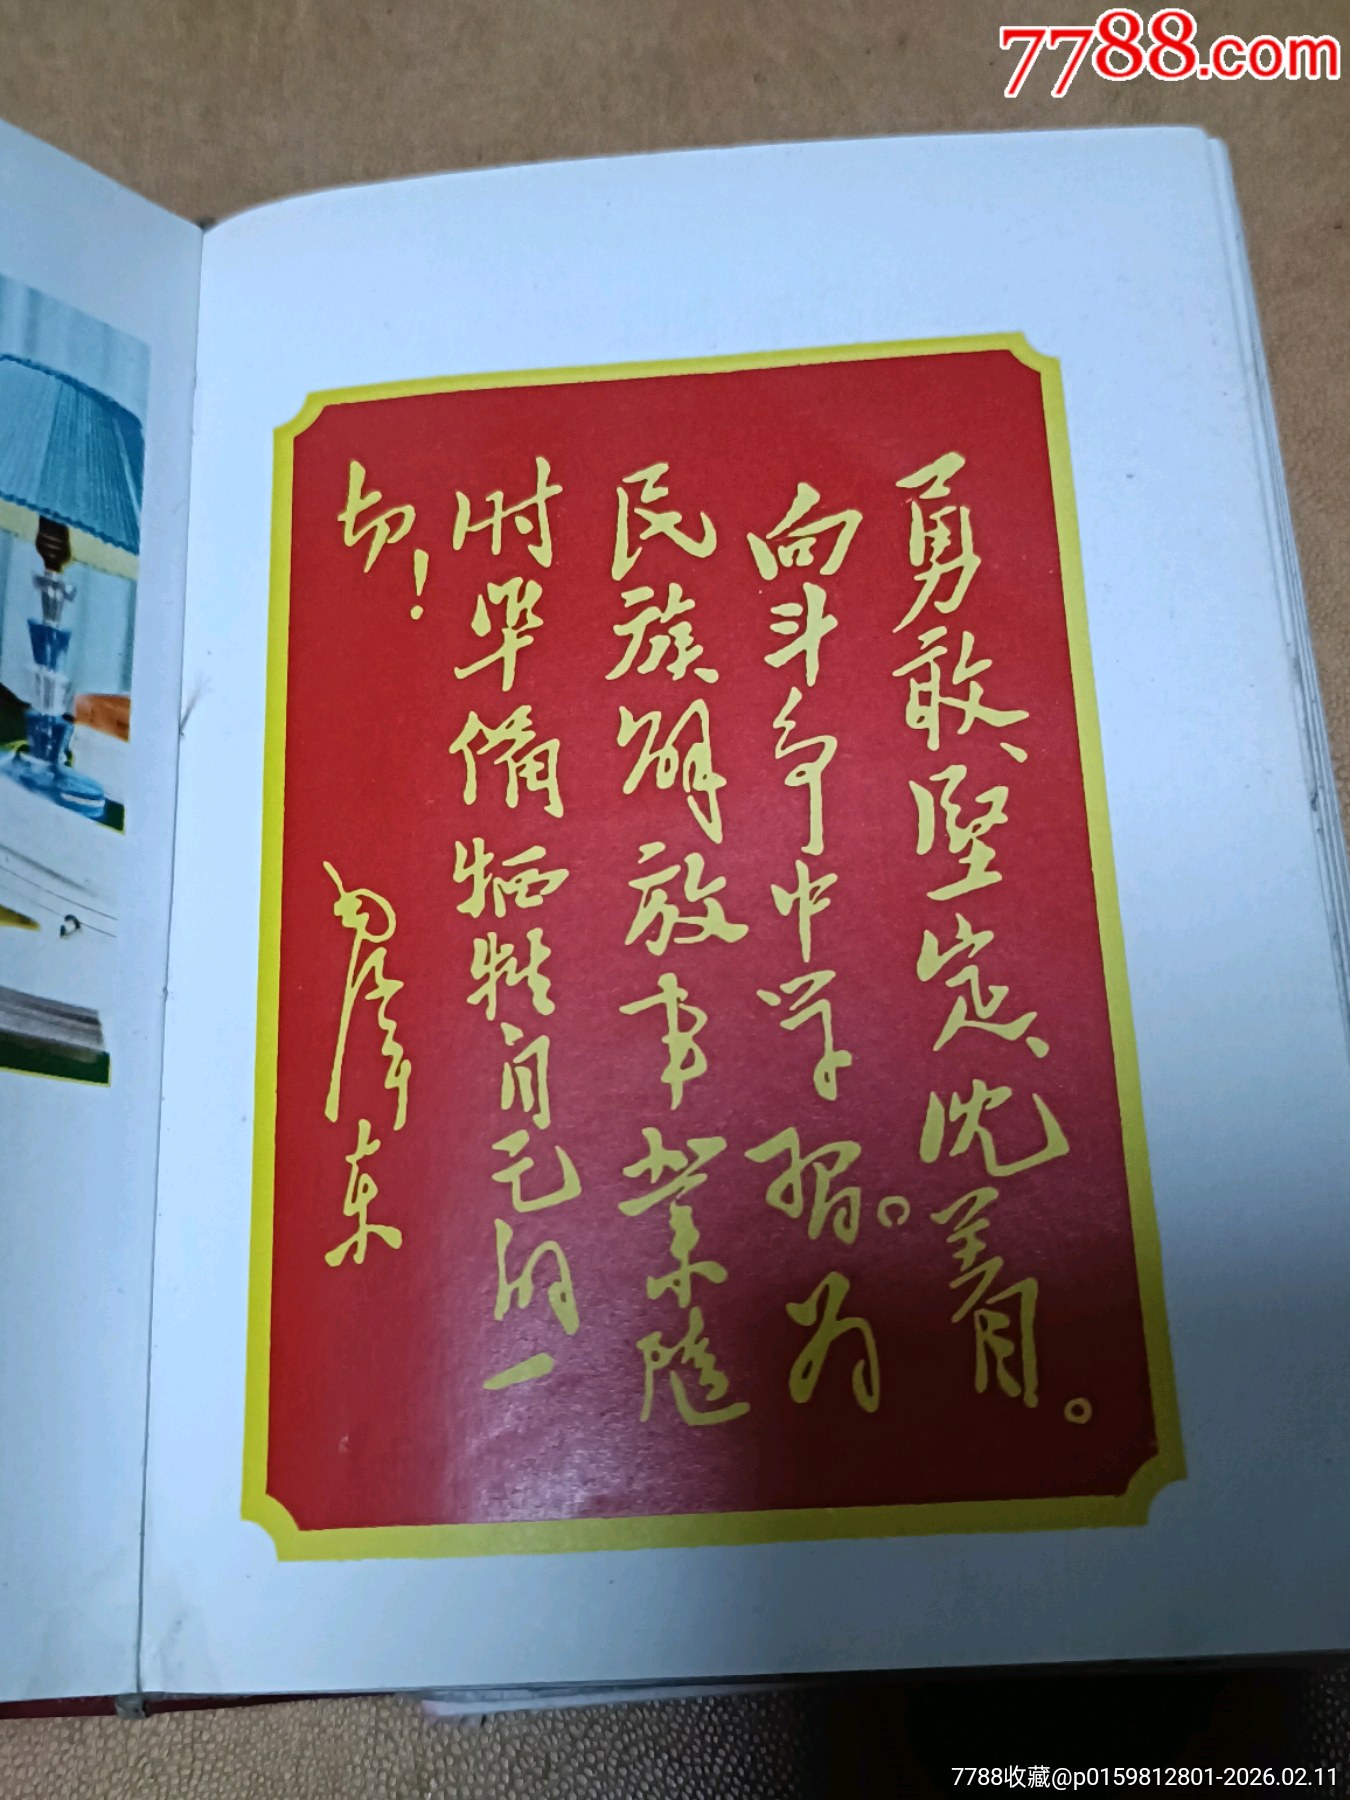 7788.com
勇敢、坚定、沈着。
向斗争中学习。为
民族解放事业随
时准备牺牲自己的一
切！
毛泽东
7788收藏@p0159812801-2026.02.11